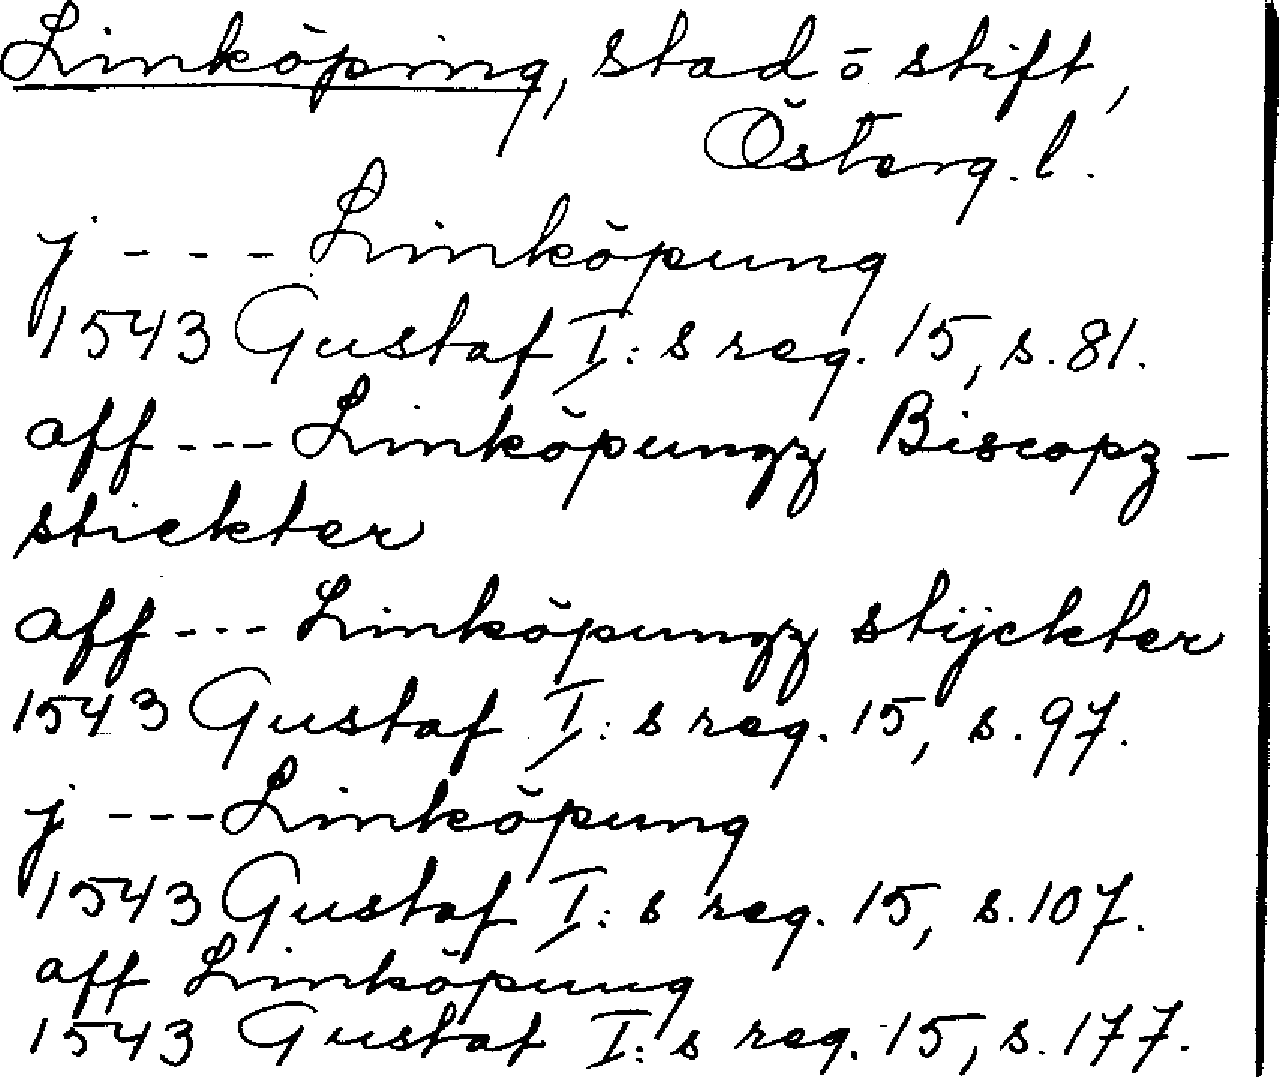 Linköping, stad o stift,
Österg.l.
j --- Linköpung
1543 Gustaf I:s reg. 15, s. 81.
aff --- Linköpungz Biscopz-
stickter
aff --- Linköpungz stijckter
1543 Gustaf I:s reg. 15, s. 97.
j --- Linköpung
1543 Gustaf I:s reg. 15, s. 107.
aff Linköpung
1543 Gustaf I:s reg. 15, s. 177.